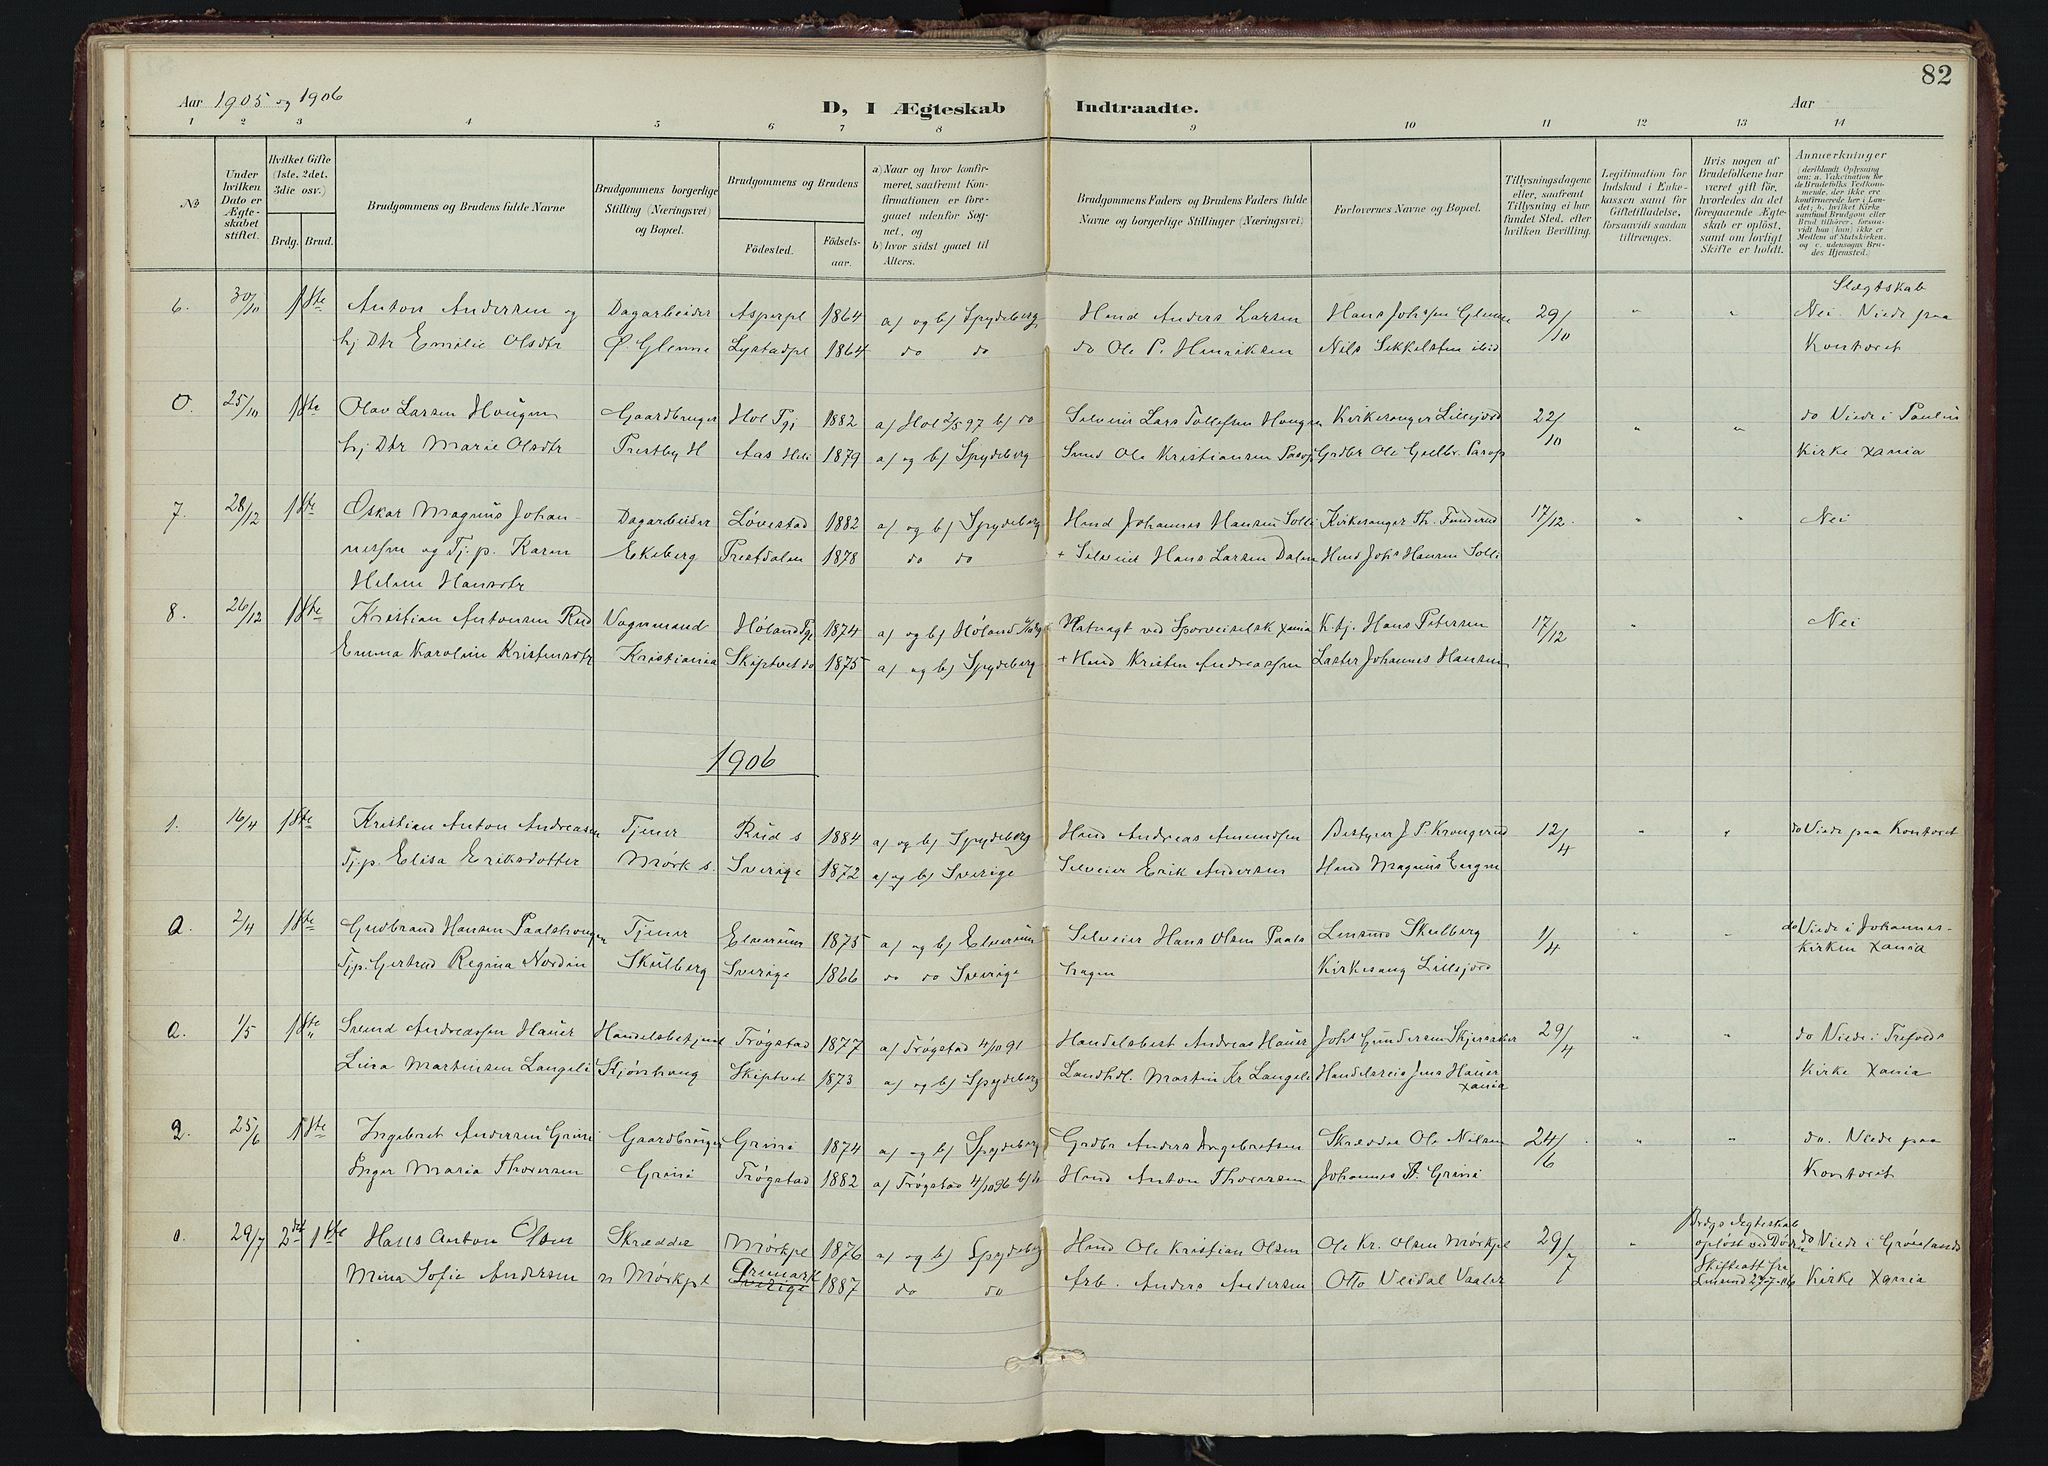 82
Aar 1905 og 1906
D, I Ægteskab Indtraadte.
Aar
1 2 3 4 5 6 7 8 9 10 11 12 13 14
№
Under hvilken Dato er Ægteskabet stiftet.
Hvilket Gifte (1ste, 2det, 3die osv.)
Brdg. Brud.
Brudgommens og Brudens fulde Navne
Brudgommens borgerlige Stilling (Næringsvei) og Bopæl.
Brudgommens og Brudens
Födested.
Födsels-aar.
a) Naar og hvor konfirmeret, saafremt Konfirmationen er foregaaet udenfor Sognet, og
b) hvor sidst gaaet til Alters.
Brudgommens Faders og Brudens Faders fulde Navne og borgerlige Stillinger (Næringsvei)
Forlovernes Navne og Bopæl.
Tillysningsdagene eller, saafremt Tillysning ei har fundet Sted, efter hvilken Bevilling.
Legitimation for Indskud i Enkekassen samt for Giftetilladelse, forsaavidt saadan tiltrænges.
Hvis nogen af Brudefolkene har været gift för, hvorledes da det foregaaende Ægteskab er oplöst, samt om lovligt Skifte er holdt.
Anmærkninger (deriblandt Oplysning om: a. Vakcination for de Brudefolks Vedkommende, der ikke ere konfirmerede her i Landet; b. hvilket Kirkesamfund Brudgom eller Brud tilhörer, forsaavidt han (hun) ikke er Medlem af Statskirken, og c. udensogns Brudes Hjemsted.
Slægtskab
6. 30/10 1 1ste Anton Andersen og Dagarbeider Asperpl 1864 a) og b) Spydeberg Hmd Anders Larsen Hans Johsen Glenne 29/10 " " Nei. Viede paa
hj Dtr Emilie Olsdtr Ø. Glenne Lystadpl 1864 do do do Ole P. Henriksen Nils Sekkelsten ibid Kontoret
0. 25/10 1ste Olav Larsen Hougen Gaardbruger Hol Pgj 1882 a) Hol 2/5 97 b) do Selveier Lars Tollefsen Hougen Kirkesanger Lillejord 22/10 " " do Viede i Paulus
hj Dtr Marie Olsdtr Prestby H Aas 1879 a) og b) Spydeberg Smed Ole Kristiansen Grdbr Ole Kirke Xania
7. 28/12 1ste Oskar Magnus Johan- Dagarbeider Løvestad 1882 a) og b) Spydeberg Hmd Johannes Hansen Solli Kirkesanger Th. Funderud 17/12. " " Nei
nessen og Tj. p. Karen Ekeberg Prestdalen 1878 do do + Selveier Hans Larsen Dalen Hmd Johs Hansen Solli
Helene Hansdtr
8. 26/12 1ste Kristian Antonsen Rud Vognmand Høland Pgj 1874 a) og b) Høland Natvagt ved Sporveiselsk Xania K. tj. Hans Petersen 17/12 " Nei
Emma Karoline Kristensdtr Kristiania Skiptvet do 1875 a) og b) Spydeberg + Hmd Kristen Andreassen Johannes Hansen
1906
1. 16/4 1ste Kristian Anton Andreassen Tjener Rud s 1884 a) og b) Spydeberg Hmd Andreas Amundsen Bestyrer J P. Krongerud 12/4 " " do Viede paa Kontoret
Tj. p. Elisa Eriksdotter Mørk s. Sverige 1872 a) og b) Sverige Selveier Erik Andersen Hmd Magnus Engen
0. 2/4 1ste Gudbrand Hansen Paalshougen Tjener Elverum 1875 a) og b) Elverum Selveier Hans Olsen Paals- Lensmd Skulberg 1/4 " " do Viede i Johannes-
Tj. p. Gertrud Regina Nordin Skulberg Sverige 1866 do do Sverige hagen Kirkesang Lillejord kirken Xania
0. 1/5 1ste Svend Andreassen Hauer Handelsbetjent Trøgstad 1877 a) Trøgstad 4/10 91 Handelsbest Andreas Hauer Johs Gundersen 29/4 " " do Viede i Trefveds
Lina Martinsen Langeli Kjønhaug Skiptvet 1873 a) og b) Spydeberg Landhdl. Martin Kr Langeli Handelsreis Jens Hauer Xania Kirke Xania
2. 25/6 1ste Ingebret Andersen Grini Gaardbruger Grini 1874 a) og b) Spydeberg Grdbr Anders Ingebretsen Skrædder Ole Nilsen 24/6 " " do. Viede paa
Inger Maria Thoresen Grini Trøgstad 1882 a) Trøgstad 4/10 96 b) do Hmd Anton Thoresen Johannes A. Grini Kontoret
0. 29/7 2det 1ste Hans Anton Olsen Skrædder Mørkpl 1876 a) og b) Spydeberg Hmd Ole Kristian Olsen Ole Kr. Olsen Mørkpl 29/7 " Brdgs Ægteskab opløst ved Døden Skifteatt fra Lensmd 27-7-06 do Viede i Grønlands
Mina Sofie Andersen n Mørkpl Sverige 1887 do do Arb. Anders Andersen Otto Veidal Vaaler Kirke Xania